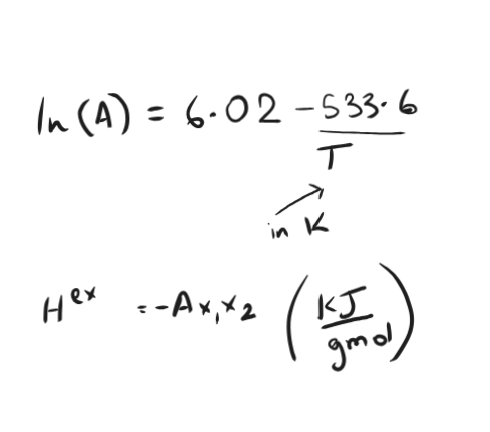 ln(A) = 6.02 - 533.6/T
in K
H^ex = -Ax₁x₂ (KJ/gmol)